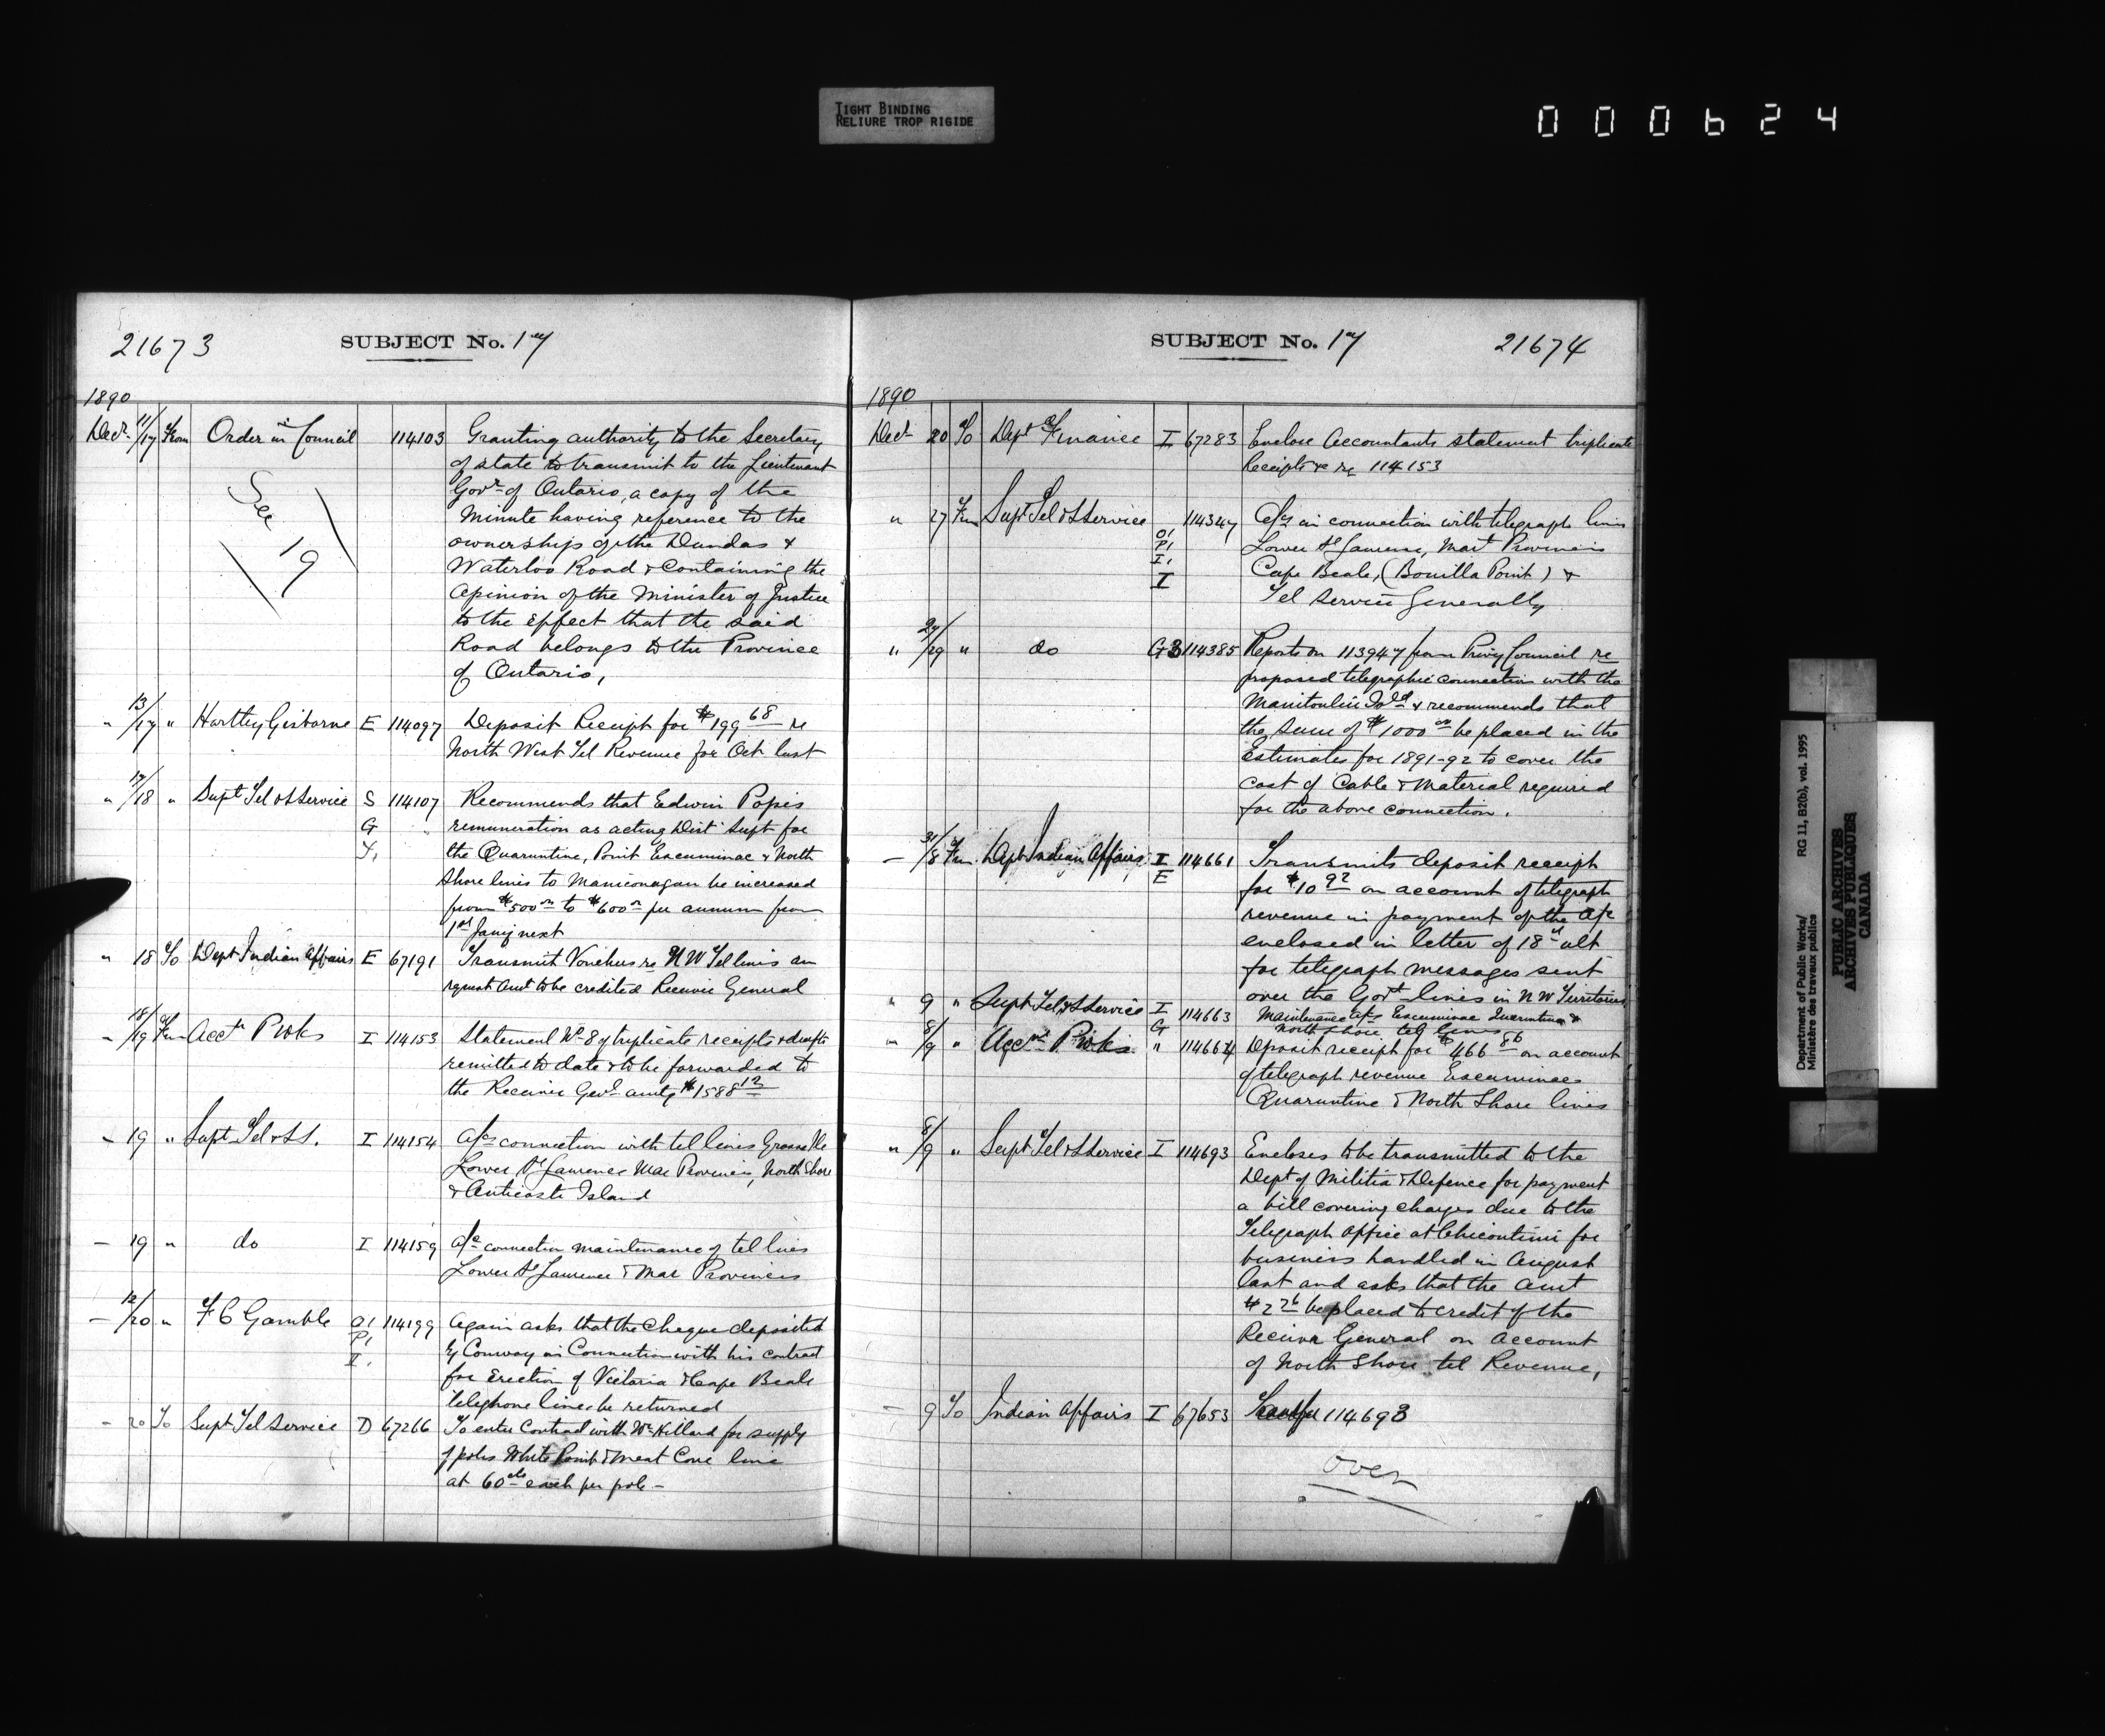 TIGHT BINDING
RELIURE TROP RIGIDE
000624
21673
SUBJECT No. 17
1890
Decr 11/17 From Order in Council 114103 Granting authority to the Secretary
of state to transmit to the Lieutenant
Govr of Ontario, a copy of the
Minute having reference to the
ownership of the Dundas &
Waterloo Road & Containing the
Opinion of the Minister of Justice
to the Effect that the said
Road belongs to the Province
of Ontario,
See
19
" 13/17 " Hartley Gisborne E 114097 Deposit Receipt for $199 68 re
North West Tel Revenue for Oct last
" 17/18 " Supt Tel & S Service S 114107 Recommends that Edwin Pope's
G " remuneration as acting Dist Supt for
the Quarantine, Point Escuminac & North
Shore lines to Manicouagan be increased
from $500 00 to $600 00 per annum from
1st Jany next
" 18 To Dept Indian Affairs E 67191 Transmit Vouchers re N W Tel lines
request amt to be credited Receiver General
" 18/19 Frm Acct P Wks I 114153 Statement No 8 of triplicate receipts & drafts
remitted to date & to be forwarded to
the Receiver Genl amtg $1588 12
" 19 " Supt Tel & S S. I 114154 A/cs connection with tel lines Grosse Ile
Lower St Laurence Mar Provinces, North Shore
& Anticosti Island
— 19 " do I 114159 A/c connection maintenance of tel lines
Lower St Laurence & Mar Provinces
— 12/20 " F C Gamble O! 114199 Again asks that the Cheque deposited
P! by Conway in Connection with his contract
I. for Erection of Victoria & Cape Beale
telephone line be returned
— 20 To Supt Tel Service D 67266 To enter Contract with Wm Hilland for supply
of poles White Point & Meat Cove line
at 60 cts each per pole —
SUBJECT No. 17
21674
1890
Decr 20 To Dept Finance I 67283 Enclose Accountants statement triplicate
Receipts &c re 114153
" 27 Frm Supt Tel & S Service 114347 A/cs in connection with telegraph lines
O! Lower St Laurence, Mart Provinces
P!
I. Cape Beale, (Bonilla Point) &
I Tel Service Generally
" 27/29 " do G3 114385 Reports on 113947 from Privy Council re
proposed telegraphic connection with the
Manitoulin Isld & recommends that
the sum of $1000 00 be placed in the
Estimates for 1891-92 to cover the
cost of Cable & Material required
for the above connection.
— 31/8 Frm Dept Indian Affairs I 114661 Transmits deposit receipt
E for $10 92 on account of telegraph
revenue in payment of the A/c
enclosed in letter of 18th ult
for telegraph messages sent
over the Govt lines in N W Territories
" 9 " Supt Tel & S Service I 114663 Maintenance a/cs Escuminac Quarantine &
G North Shore tel lines
" 8/9 " Acct P Wks " 114664 Deposit receipt for $466 86 on account
of telegraph revenue Escuminac
Quarantine & North Shore lines
" 8/9 " Supt Tel & S Service I 114693 Encloses to be transmitted to the
Dept of Militia & Defence for payment
a bill covering charges due to the
Telegraph Office at Chicoutimi for
business handled in August
last and asks that the amt
$2 26 be placed to credit of the
Receiver General on account
of North Shore tel Revenue,
— 9 To Indian Affairs I 67653 114693
over
Department of Public Works/
Ministère des travaux publics
RG 11, B2(b), vol. 1995
PUBLIC ARCHIVES
ARCHIVES PUBLIQUES
CANADA